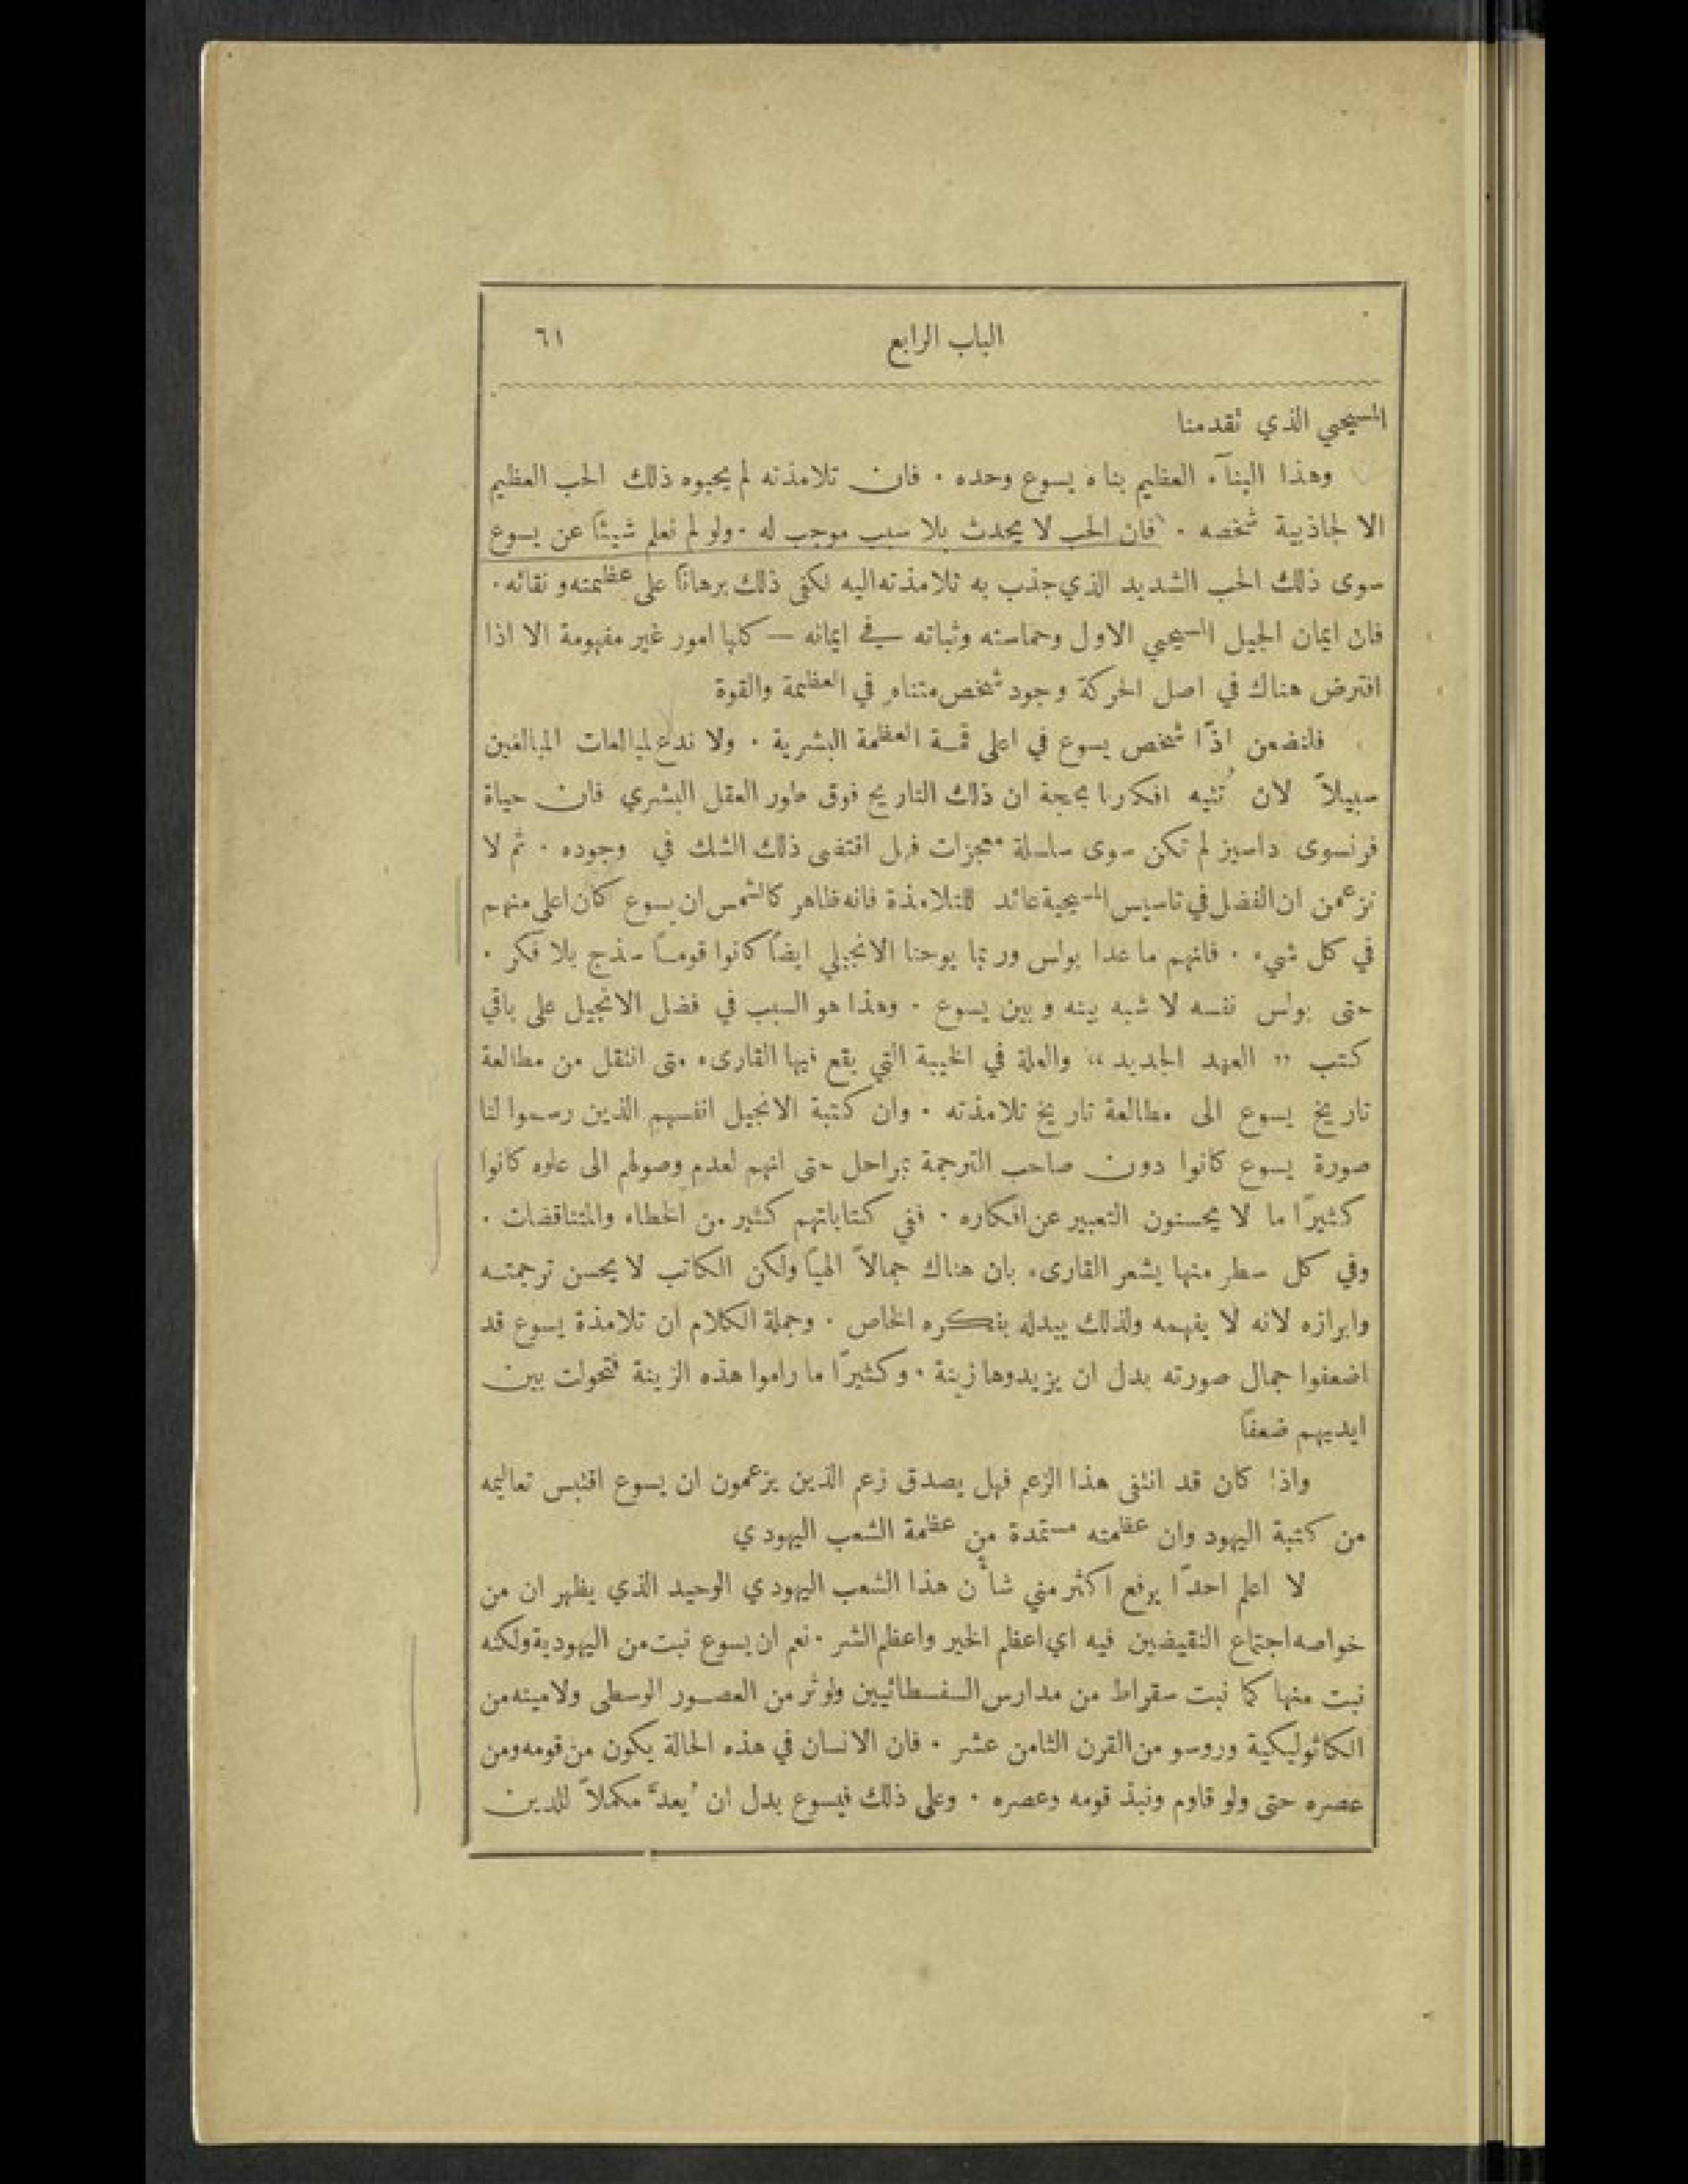 الباب الرابع ٦١
المسيحي الذي تقدمنا
وهذا البنآء العظيم بناه يسوع وحده ٠ فان تلامذته لم يحبوه ذلك الحب العظيم
الا لجاذبية شخصه ٠ فان الحب لا يحدث بلا سبب موجب له ٠ ولو لم نعلم شيئًا عن يسوع
سوى ذلك الحب الشديد الذي جذب به تلامذته اليه لكفى ذلك برهانًا على عظمته و نقائه ٠
فان ايمان الجيل المسيحي الاول وحماسته وثباته في ايمانه — كلها امور غير مفهومة الا اذا
افترض هناك في اصل الحركة وجود شخص متناهٍ في العظمة والقوة
فلنضعن اذًا شخص يسوع في اعلى قمة العظمة البشرية ٠ ولا ندع لمبالغات المبالغين
سبيلاً لان تُتيه افكارنا بحجة ان ذلك التاريخ فوق طور العقل البشري فان حياة
فرنسوى داسيز لم تكن سوى سلسلة معجزات فهل اقتضى ذلك الشك في وجوده ٠ ثم لا
نزعمن ان الفضل في تاسيس المسيحية عائد للتلامذة فانه ظاهر كالشمس ان يسوع كان اعلى منهم
في كل شيء ٠ فانهم ما عدا بولس وربما يوحنا الانجيلي ايضًا كانوا قومًا سذج بلا فكر ٠
حتى بولس نفسه لا شبه بينه و بين يسوع ٠ وهذا هو السبب في فضل الانجيل على باقي
كتب ” العهد الجديد “ والعلة في الخيبة التي يقع فيها القارىء متى انتقل من مطالعة
تاريخ يسوع الى مطالعة تاريخ تلامذته ٠ وان كتبة الانجيل انفسهم الذين رسموا لنا
صورة يسوع كانوا دون صاحب الترجمة بمراحل حتى انهم لعدم وصولهم الى علوه كانوا
كثيرًا ما لا يحسنون التعبير عن افكاره ٠ ففي كتاباتهم كثير من الخطاء والمتناقضات ٠
وفي كل سطر منها يشعر القارىء بان هناك جمالاً الهيًا ولكن الكاتب لا يحسن ترجمته
وابرازه لانه لا يفهمه ولذلك يبدله بفكره الخاص ٠ وجملة الكلام ان تلامذة يسوع قد
اضعفوا جمال صورته بدل ان يزيدوها زينة ٠ وكثيرًا ما راموا هذه الزينة فتحولت بين
ايديهم ضعفًا
واذا كان قد انتفى هذا الزعم فهل يصدق زعم الذين يزعمون ان يسوع اقتبس تعاليمه
من كتبة اليهود وان عظمته مستمدة من عظمة الشعب اليهودي
لا اعلم احدًا يرفع اكثر مني شأن هذا الشعب اليهودي الوحيد الذي يظهر ان من
خواصه اجتماع النقيضين فيه اي اعظم الخير واعظم الشر ٠ نعم ان يسوع نبت من اليهودية ولكنه
نبت منها كما نبت سقراط من مدارس السفسطائيين ولوثر من العصور الوسطى ولامينه من
الكاثوليكية وروسو من القرن الثامن عشر ٠ فان الانسان في هذه الحالة يكون من قومه ومن
عصره حتى ولو قاوم ونبذ قومه وعصره ٠ وعلى ذلك فيسوع بدل ان يُعدَّ مكملاً للدين